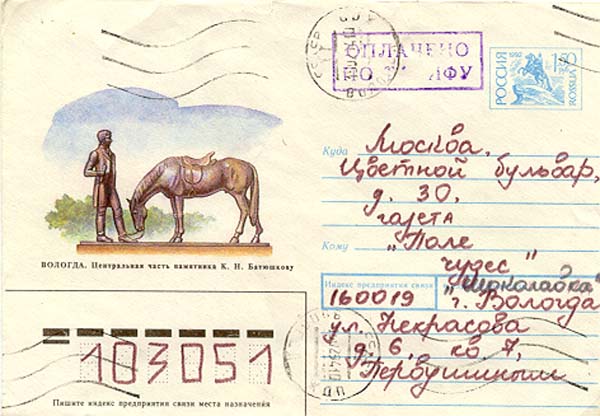 ОПЛАЧЕНО
ПО
ИФУ
РОССИЯ
1992
МОСКВА
Куда
Москва,
Цветной бульвар,
д. 30,
газета
Кому
„Поле
чудес"
ВОЛОГДА. Центральная часть памятника К. Н. Батюшкову
Индекс предприятия связи
160019
г. Вологда
ул. Некрасова
д. 6, кв 7,
Первушиным
103051
Пишите индекс предприятия связи места назначения